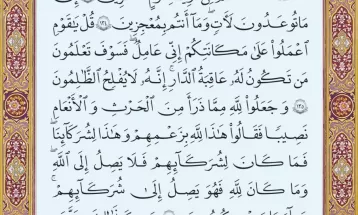 مَا تُوعَدُونَ لَآتٍ وَمَا أَنتُم بِمُعْجِزِينَ ١٣٤ قُلْ يَا قَوْمِ
اعْمَلُوا عَلَىٰ مَكَانَتِكُمْ إِنِّي عَامِلٌ فَسَوْفَ تَعْلَمُونَ
مَن تَكُونُ لَهُ عَاقِبَةُ الدَّارِ إِنَّهُ لَا يُفْلِحُ الظَّالِمُونَ
١٣٥ وَجَعَلُوا لِلَّهِ مِمَّا ذَرَأَ مِنَ الْحَرْثِ وَالْأَنْعَامِ
نَصِيبًا فَقَالُوا هَٰذَا لِلَّهِ بِزَعْمِهِمْ وَهَٰذَا لِشُرَكَائِنَا
فَمَا كَانَ لِشُرَكَائِهِمْ فَلَا يَصِلُ إِلَى اللَّهِ
وَمَا كَانَ لِلَّهِ فَهُوَ يَصِلُ إِلَىٰ شُرَكَائِهِمْ